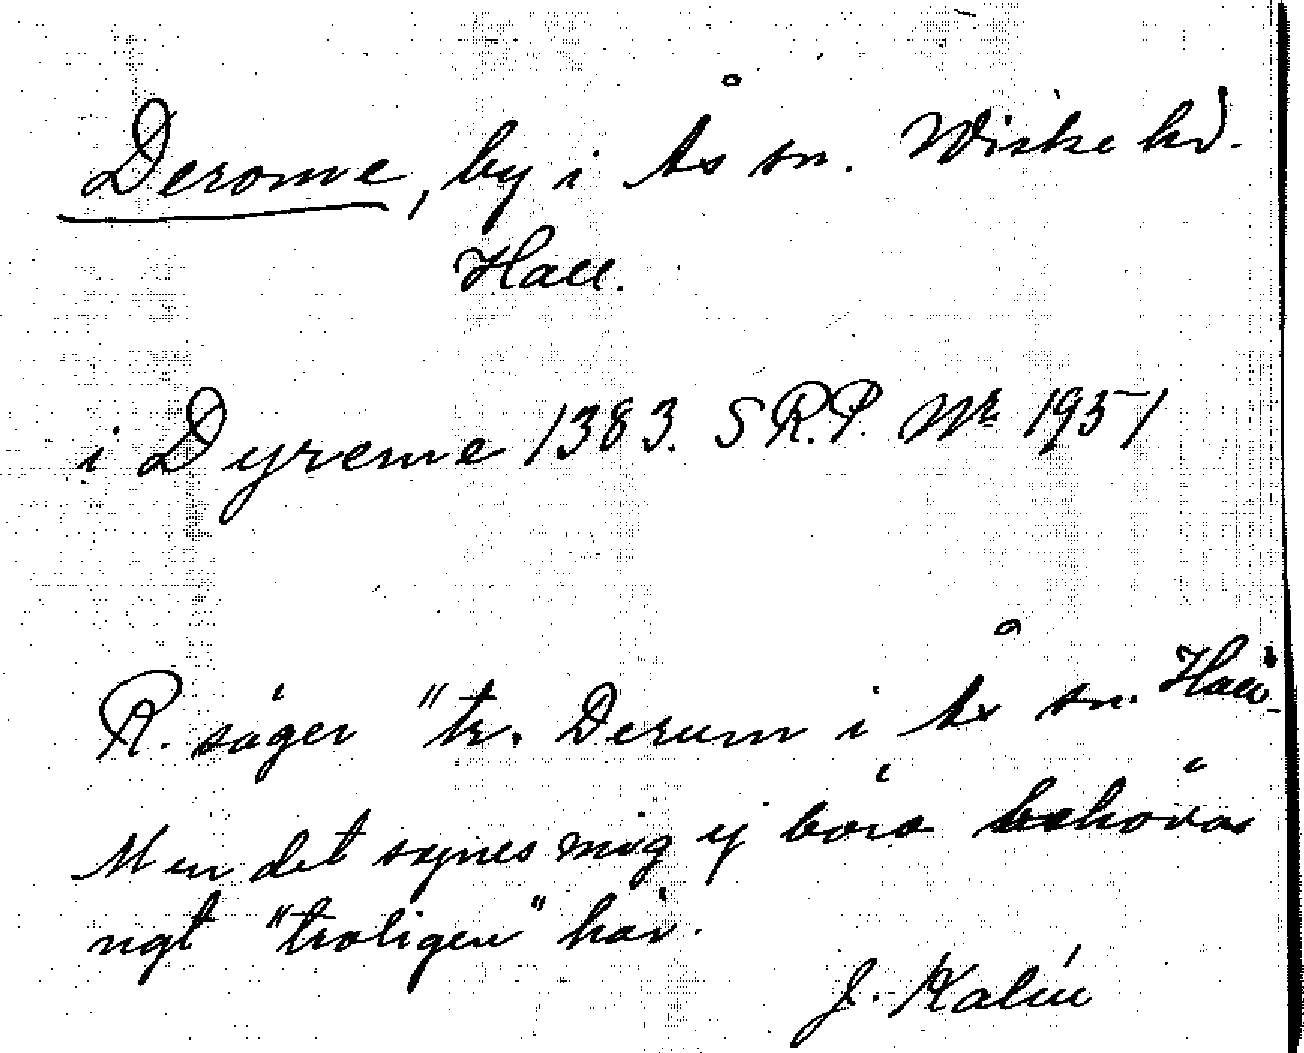 Derome, by i Ås sn. Wiske hd.
Hall.
i Dyreme 1383. S R.P. Nr 1951
R. säger "tr. Derum i Ås sn. Hall.
Men det synes mig ej böra behövas
ngt "troligen" här.
J. Kalén